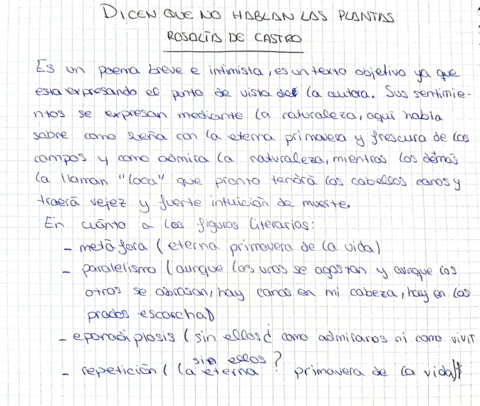 DICEN QUE NO HABLAN LAS PLANTAS
ROSALÍA DE CASTRO
Es un poema breve e intimista, es un texto objetivo ya que
esta expresando el punto de vista de la autora. Sus sentimie-
ntos se expresan mediante la naturaleza, aquí habla
sobre como sueña con la eterna primavera y frescura de los
campos y como admira la naturaleza, mientras los demás
la llaman "loca" que pronto tendrá los cabellos canos y
traerá vejez y fuerte intuición de muerte.
En cuánto a las figuras literarias:
- metáfora (eterna primavera de la vida)
- paralelismo (aunque los unos se agostan y aunque los
otros se abrasan, hay canas en mi cabeza, hay en los
prados escarcha)
- epanadiplosis (sin ellos ¿ como admiraros ni como vivir
sin ellos?
- repetición (la eterna primavera de la vida)